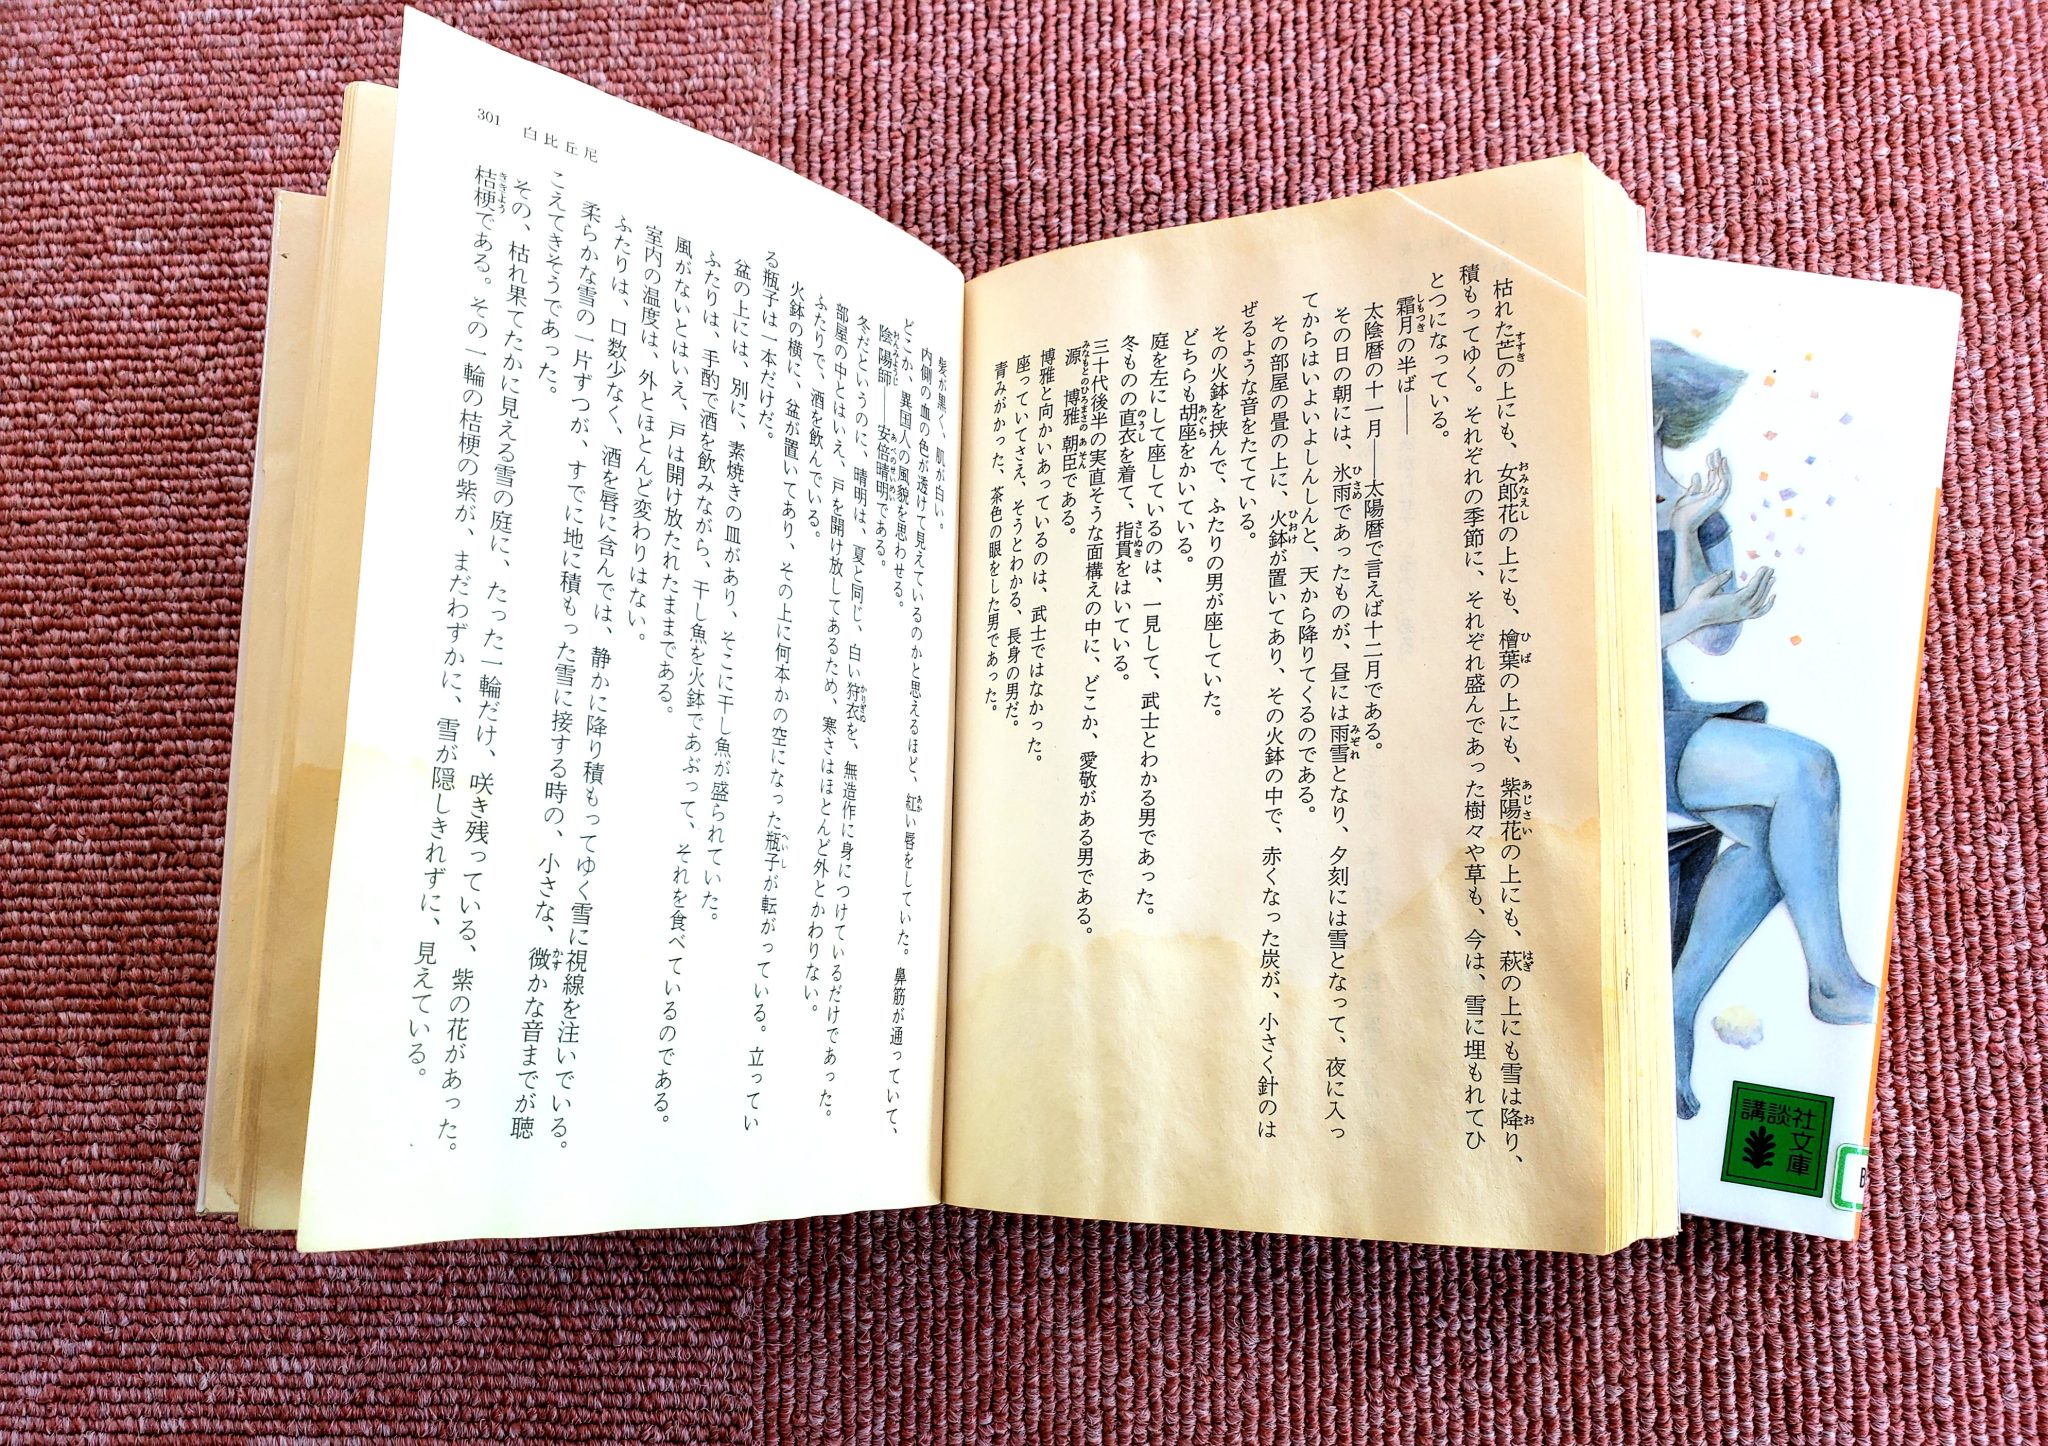 枯れた芒の上にも、女郎花の上にも、檜葉の上にも、紫陽花の上にも、萩の上にも雪は降り、
積もってゆく。それぞれの季節に、それぞれ盛んであった樹々や草も、今は、雪に埋もれてひ
とつになっている。
霜月の半ば――
太陰暦の十一月――太陽暦で言えば十二月である。
その日の朝には、氷雨であったものが、昼には雨雪となり、夕刻には雪となって、夜に入っ
てからはいよいよしんしんと、天から降りてくるのである。
その部屋の畳の上に、火鉢が置いてあり、その火鉢の中で、赤くなった炭が、小さく針のは
ぜるような音をたてている。
その火鉢を挟んで、ふたりの男が座していた。
どちらも胡座をかいている。
庭を左にして座しているのは、一見して、武士とわかる男であった。
冬ものの直衣を着て、指貫をはいている。
三十代後半の実直そうな面構えの中に、どこか、愛敬がある男である。
源博雅朝臣である。
博雅と向かいあっているのは、武士ではなかった。
座っていてさえ、そうとわかる、長身の男だ。
青みがかった、茶色の眼をした男であった。
髪が黒く、肌が白い。
内側の血の色が透けて見えているのかと思えるほど、紅い唇をしていた。鼻筋が通っていて、
どこか、異国人の風貌を思わせる。
陰陽師――安倍晴明である。
冬だというのに、晴明は、夏と同じ、白い狩衣を、無造作に身につけているだけであった。
部屋の中とはいえ、戸を開け放してあるため、寒さはほとんど外とかわりない。
ふたりで、酒を飲んでいる。
火鉢の横に、盆が置いてあり、その上に何本かの空になった瓶子が転がっている。立ってい
る瓶子は一本だけだ。
盆の上には、別に、素焼きの皿があり、そこに干し魚が盛られていた。
ふたりは、手酌で酒を飲みながら、干し魚を火鉢であぶって、それを食べているのである。
風がないとはいえ、戸は開け放たれたままである。
室内の温度は、外とほとんど変わりはない。
ふたりは、口数少なく、酒を唇に含んでは、静かに降り積もってゆく雪に視線を注いでいる。
柔らかな雪の一片ずつが、すでに地に積もった雪に接する時の、小さな、微かな音までが聴
こえてきそうであった。
その、枯れ果てたかに見える雪の庭に、たった一輪だけ、咲き残っている、紫の花があった。
桔梗である。その一輪の桔梗の紫が、まだわずかに、雪が隠しきれずに、見えている。
301 白比丘尼
講談社
文庫